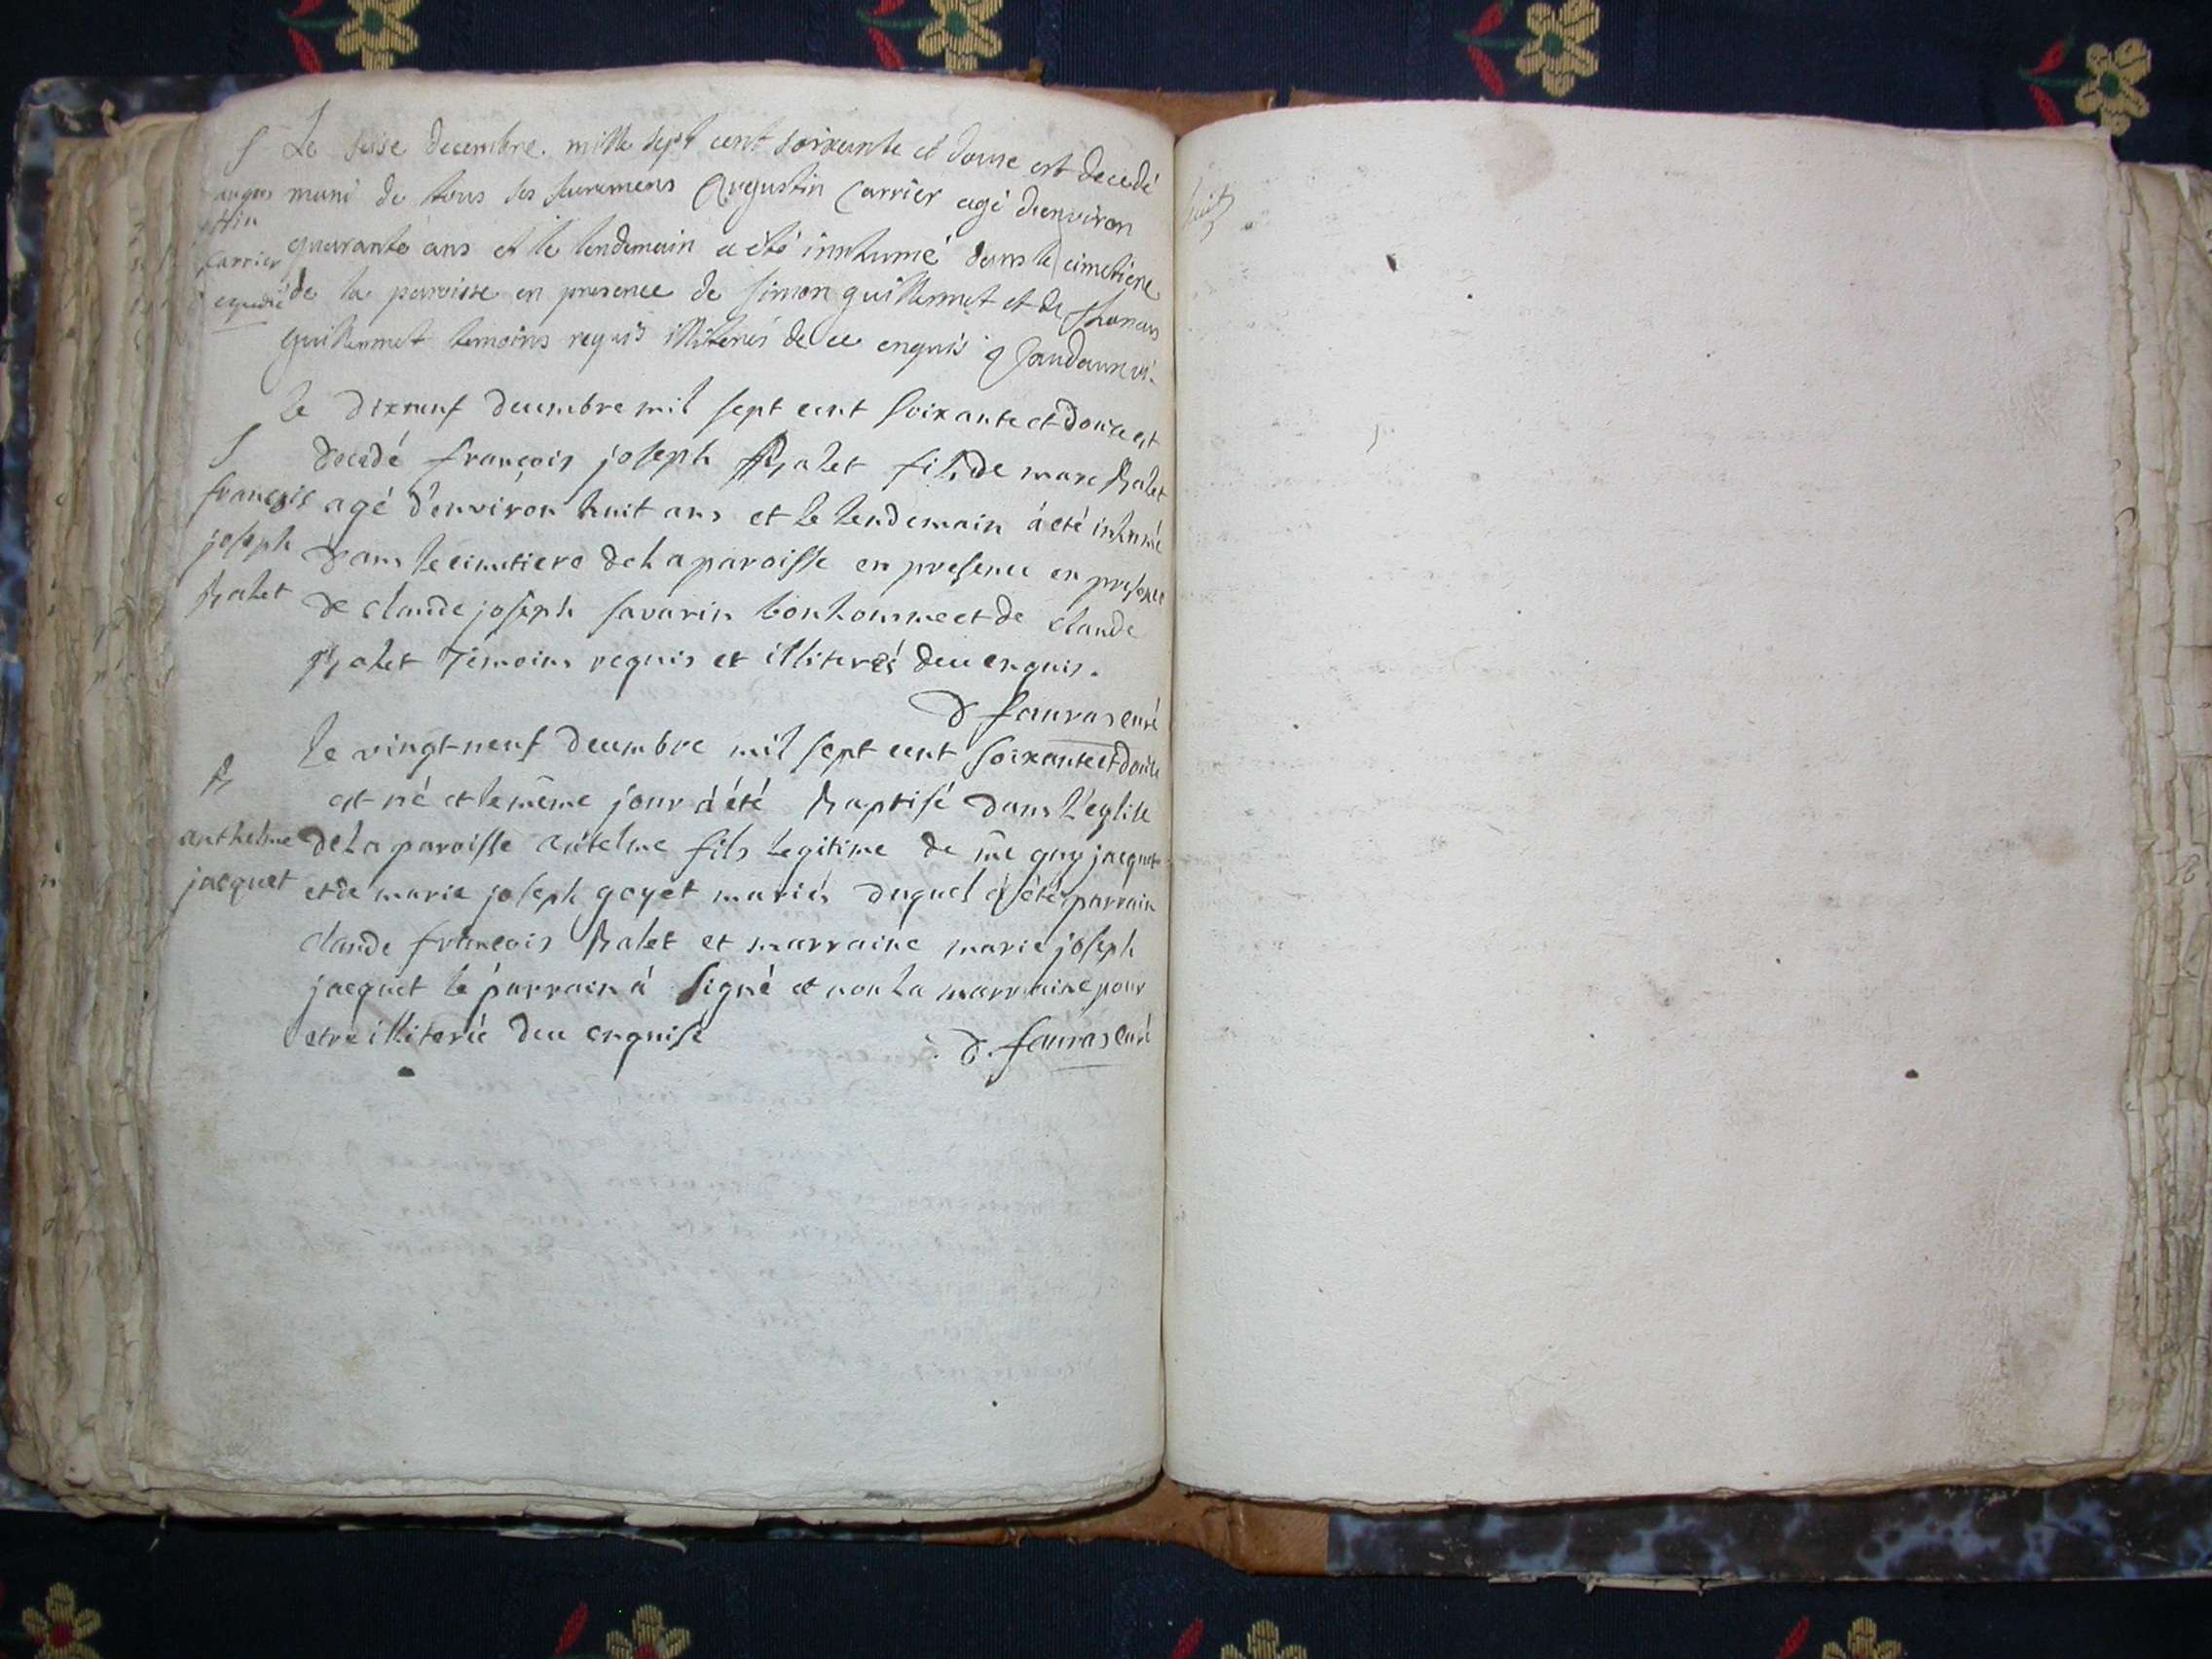 S Le seise decembre mille sept cent soixante et douse est decedé
augus muni de tous ses sacremens Augustin Carrier agé denviron
stin
Carrier quarante ans et le lendemain a été innhumé dans le cimetiere
expedié de la paroisse en presence de Simon guillermet et de thomas
guillermet temoins requis illiterés de ce enquis
le dixneuf decembre mil sept cent soixante et douze est
S
decedé françois joseph Balet fils de marc Balet
françois agé d'environ huit ans et le lendemain à été inhumé
joseph dans le cimetiere de la paroisse en presence en presence
Balet de claude joseph savarin bonhomme et de claude
Balet temoins requis et illiterés de ce enquis.
D fauras curé
le vingt-neuf decembre mil sept cent soixante et douze
B
est né et le même jour à été Baptisé dans l'eglise
anthelme de la paroisse antelme fils legitime de me guy jacquet
jacquet et de marie joseph goyet mariés duquel à été parrain
claude françois Balet et marraine marie joseph
jacquet le parrain à signé et non la marraine pour
etre illiterée de ce enquise D. fauras curé